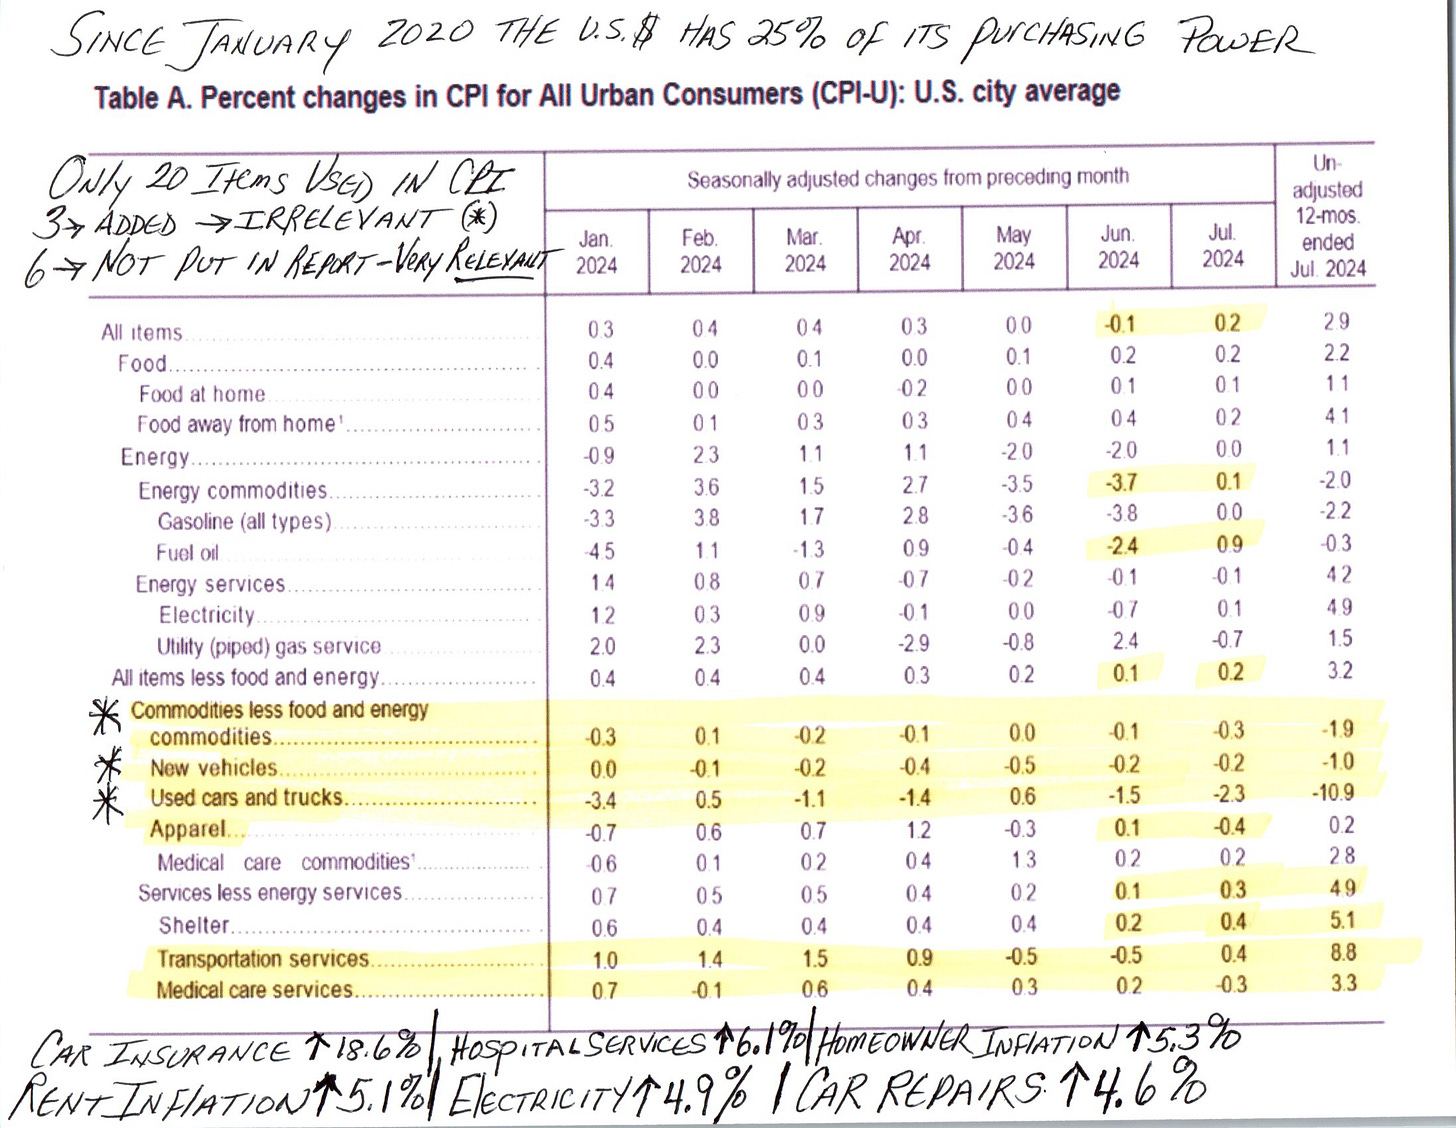 SINCE JANUARY 2020 THE U.S.$ HAS 25% OF ITS PURCHASING POWER
Table A. Percent changes in CPI for All Urban Consumers (CPI-U): U.S. city average
ONLY 20 ITEMS USED IN CPI
3→ ADDED → IRRELEVANT (*)
6→ NOT PUT IN REPORT - VERY RELEVANT
Seasonally adjusted changes from preceding month
Un-
adjusted
12-mos.
ended
Jul. 2024
Jan. 2024 Feb. 2024 Mar. 2024 Apr. 2024 May 2024 Jun. 2024 Jul. 2024
All items 0.3 0.4 0.4 0.3 0.0 -0.1 0.2 2.9
Food 0.4 0.0 0.1 0.0 0.1 0.2 0.2 2.2
Food at home 0.4 0.0 0.0 -0.2 0.0 0.1 0.1 1.1
Food away from home¹ 0.5 0.1 0.3 0.3 0.4 0.4 0.2 4.1
Energy -0.9 2.3 1.1 1.1 -2.0 -2.0 0.0 1.1
Energy commodities -3.2 3.6 1.5 2.7 -3.5 -3.7 0.1 -2.0
Gasoline (all types) -3.3 3.8 1.7 2.8 -3.6 -3.8 0.0 -2.2
Fuel oil -4.5 1.1 -1.3 0.9 -0.4 -2.4 0.9 -0.3
Energy services 1.4 0.8 0.7 -0.7 -0.2 -0.1 -0.1 4.2
Electricity 1.2 0.3 0.9 -0.1 0.0 -0.7 0.1 4.9
Utility (piped) gas service 2.0 2.3 0.0 -2.9 -0.8 2.4 -0.7 1.5
All items less food and energy 0.4 0.4 0.4 0.3 0.2 0.1 0.2 3.2
* Commodities less food and energy
commodities -0.3 0.1 -0.2 -0.1 0.0 -0.1 -0.3 -1.9
* New vehicles 0.0 -0.1 -0.2 -0.4 -0.5 -0.2 -0.2 -1.0
* Used cars and trucks -3.4 0.5 -1.1 -1.4 0.6 -1.5 -2.3 -10.9
Apparel -0.7 0.6 0.7 1.2 -0.3 0.1 -0.4 0.2
Medical care commodities¹ -0.6 0.1 0.2 0.4 1.3 0.2 0.2 2.8
Services less energy services 0.7 0.5 0.5 0.4 0.2 0.1 0.3 4.9
Shelter 0.6 0.4 0.4 0.4 0.4 0.2 0.4 5.1
Transportation services 1.0 1.4 1.5 0.9 -0.5 -0.5 0.4 8.8
Medical care services 0.7 -0.1 0.6 0.4 0.3 0.2 -0.3 3.3
CAR INSURANCE ↑18.6% | HOSPITAL SERVICES ↑6.1% | HOMEOWNER INFLATION ↑5.3%
RENT INFLATION ↑5.1% | ELECTRICITY ↑4.9% | CAR REPAIRS: ↑4.6%